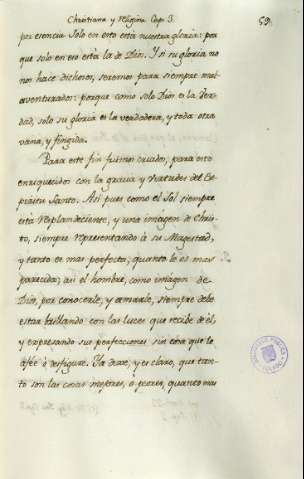 Christiana y religiosa Cap. 3.
59.
por esencia. Solo en esto está nuestra gloria: por
que solo en esto está la de Dios. Y si su gloria no
nos hace dichosos, seremos para siempre mal-
aventurados: porque como solo Dios es la Ver-
dad, solo su gloria es la verdadera, y toda otra
vana, y fingida.
Para este fin fuimos criados, para esto
enriquecidos con la gracia y virtudes del Es-
píritu Santo. Así pues como el Sol siempre
está resplandeciente, y una imagen de Chris-
to, siempre representando à su Magestad,
y tanto es mas perfecta, quanto le es mas
parecida; así el hombre, como imágen de
Dios, por conocerle, y amarle, siempre debe
estar brillando con las luces que recibe de él,
y expresando sus perfecciones sin cosa que le
afée ò desfigure. Ya dixe, y es claro, que tan-
to son las cosas mejores, ò peores, quanto mas